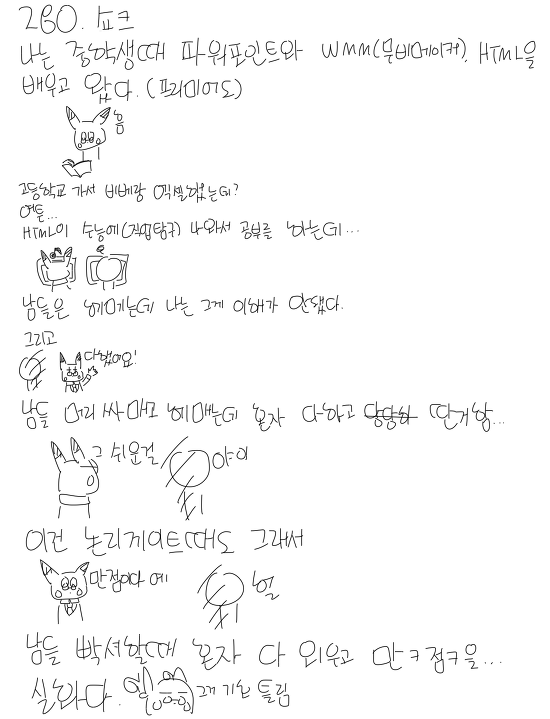 260. 쇼크
나는 중학생때 파워포인트와 WMM(무비메이커), HTML을
배우고 왔다. (프리미어도)
흠
고등학교 가서 비베랑 엑셀했는데?
여튼...
HTML이 수능에(직업탐구) 나와서 공부를 하는데...
남들은 헤메는데 나는 그게 이해가 안됐다.
그리고
다했어요!
남들 머리 싸매고 헤매는데 혼자 다하고 당당히 딴거함...
그 쉬운걸
야이
이건 논리게이트때도 그래서
만점이다 예
헐
남들 빡셔할때 혼자 다 외우고 만ㅋ점ㅋ을...
실화다.
그거 기능 틀림